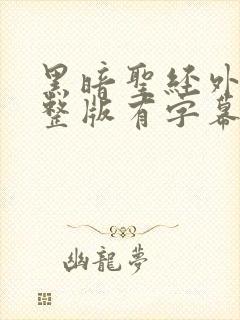 黑暗聖經外
整版有字幕
幽龍夢